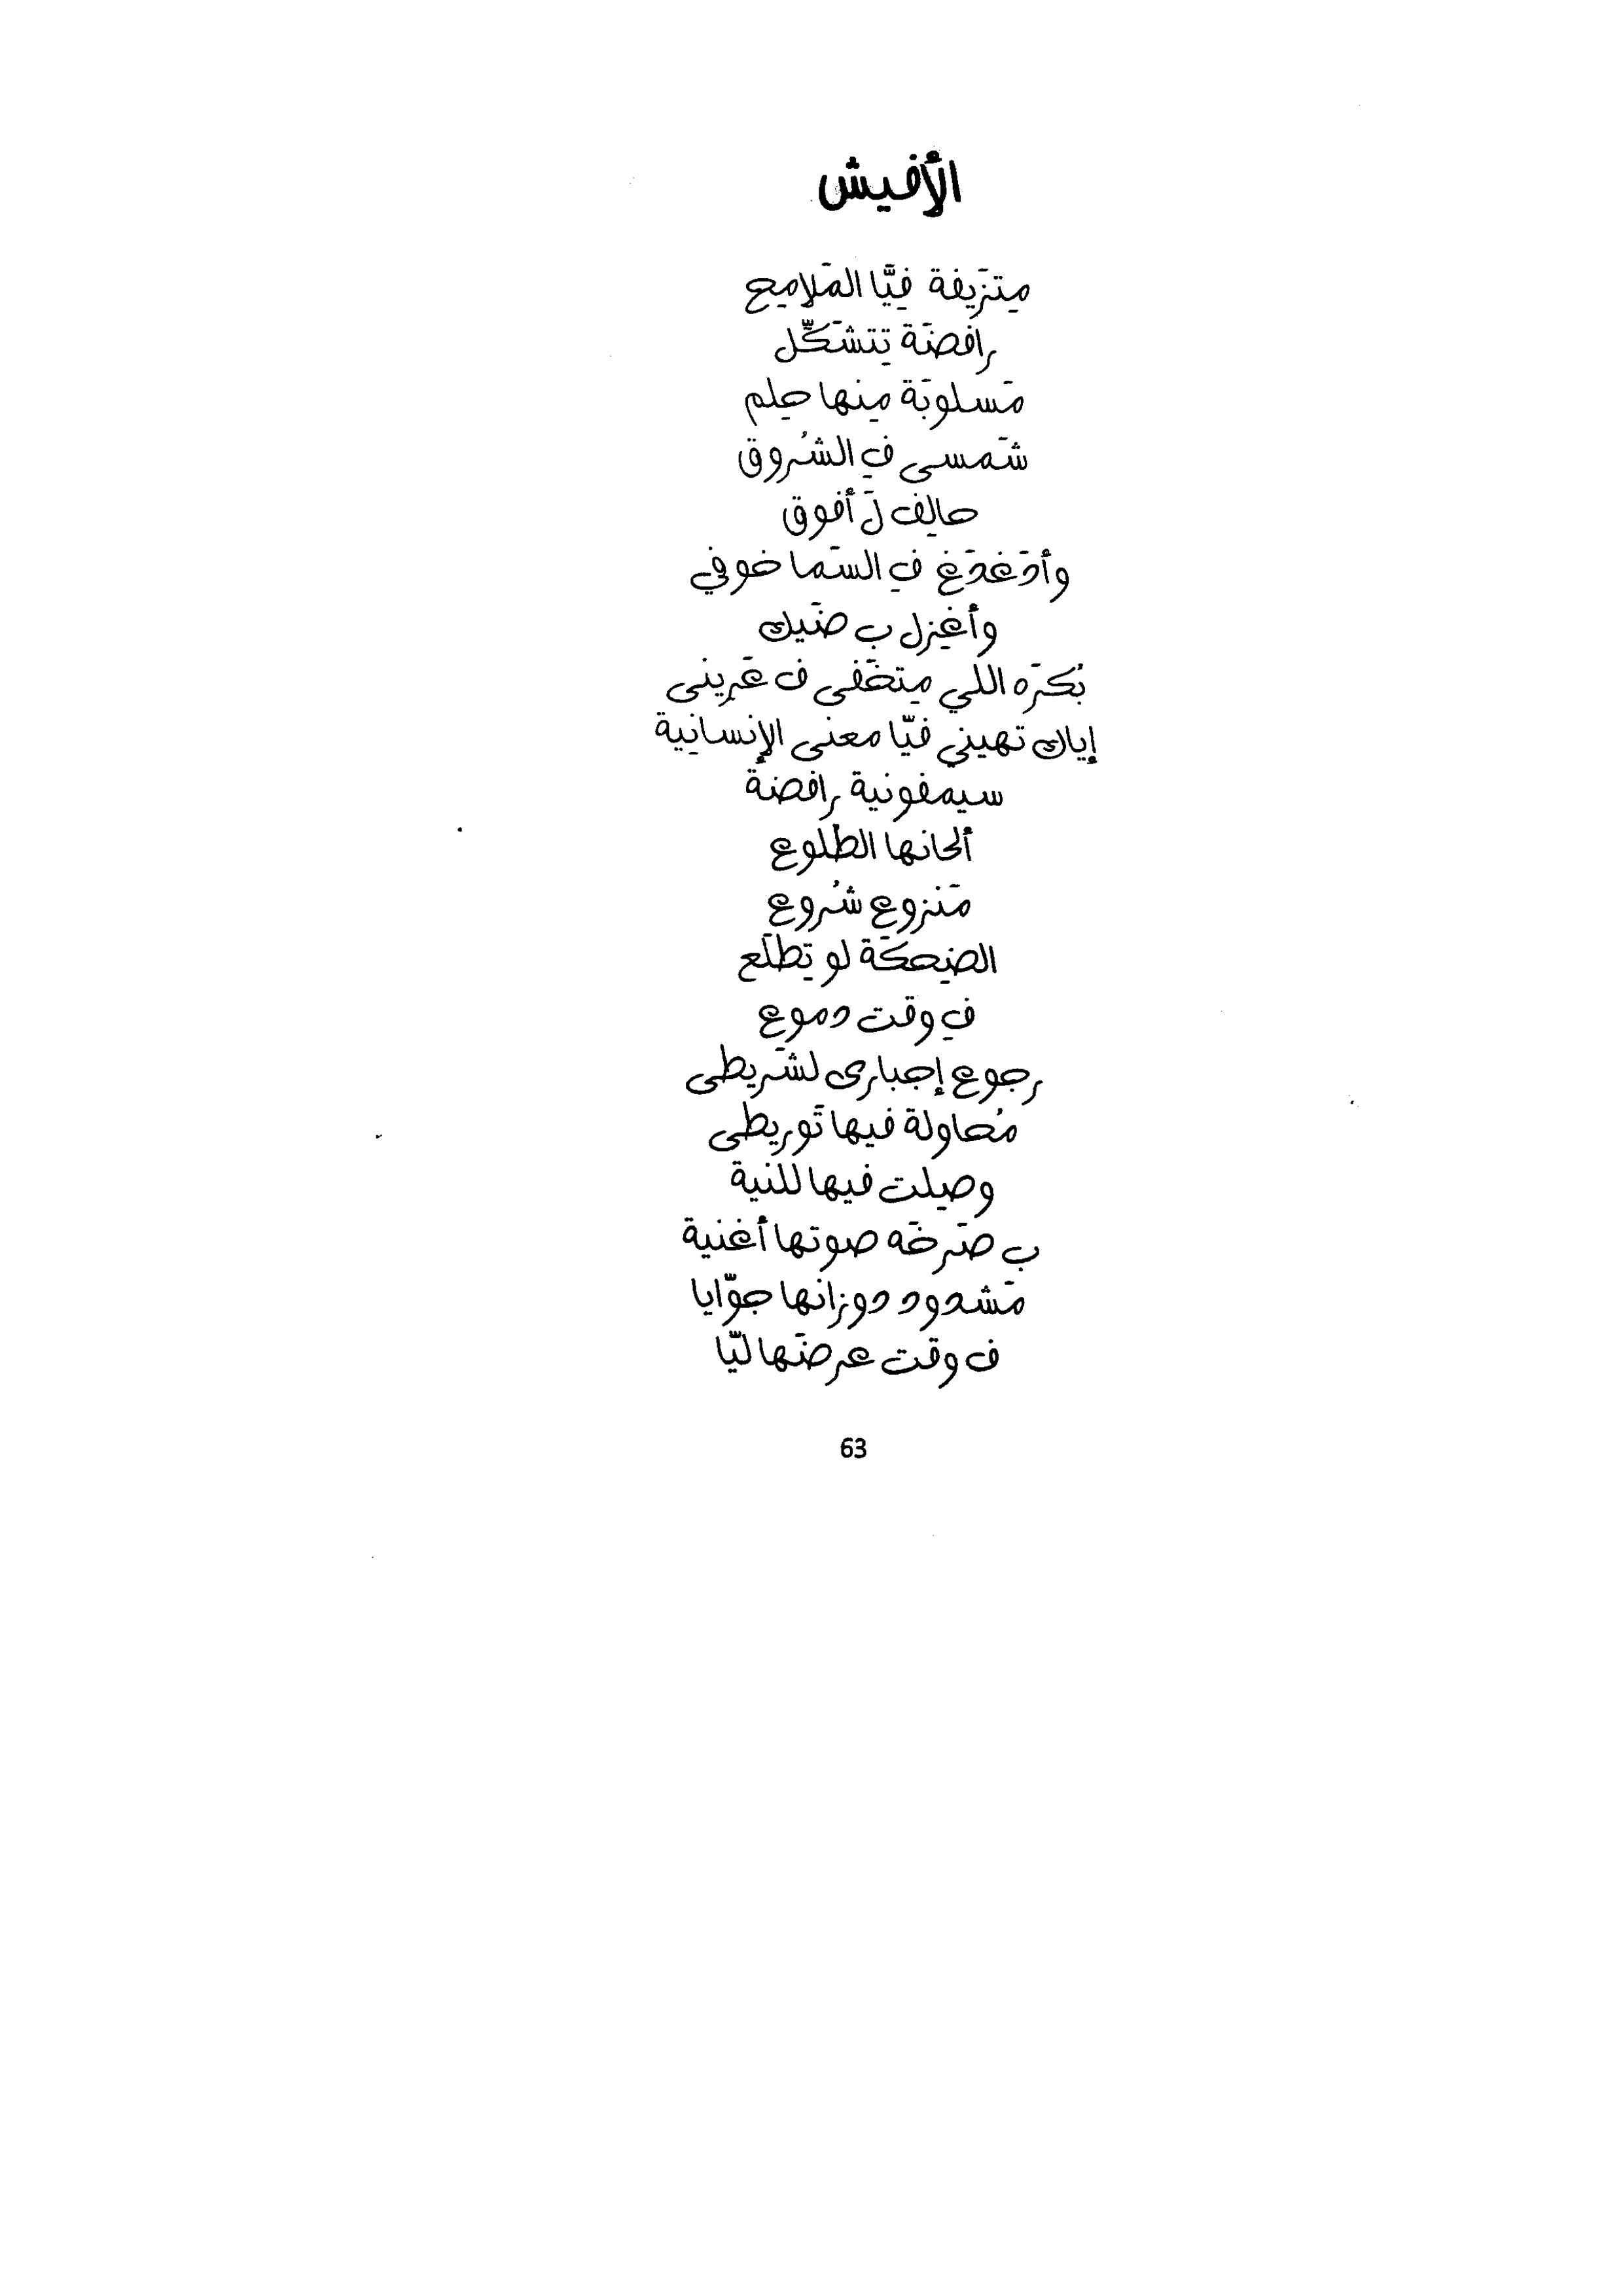 الأفيش
مِتزَيفة فِيَّا المَلامِيح
رافضَة تِتشَكِّل
مَسلوبَة مِنها حِلم
شَمسى فِ الشُروق
حالِف لَ أفوق
وأدَغدَغ فِ السَما خوفي
وأغزِل بِ ضَيك
بُكرَه اللي مِتخَفى ف عَرِينى
إياك تهيني فيّا معنى الإنسانِية
سيمفونية رافضة
ألحانها الطلوع
مَنزوع شُروع
الضِحكَة لو تِطلَع
فِ وقت دموع
رجوع إجبارى لشَريطى
مُحاولة فيها تَوريطى
وصِلت فيها للنية
بِ صَرخَه صوتها أغنية
مَشدود دوزانها جوّايا
ف وقت عرضَها ليّا
63